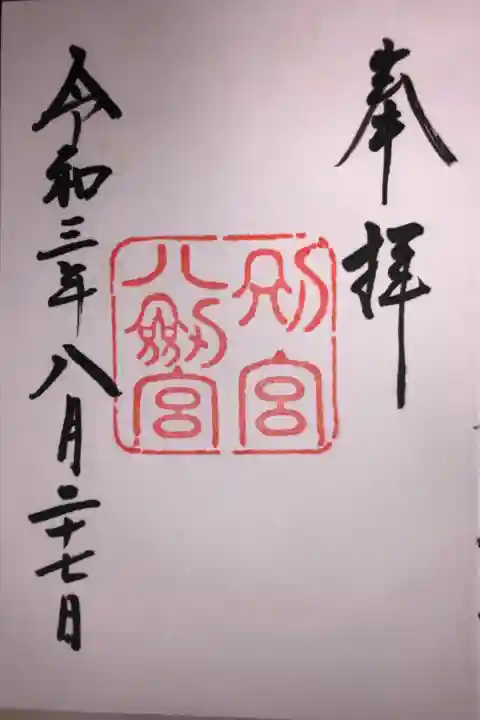 奉拝
別宮
八剱宮
令和三年八月二十七日